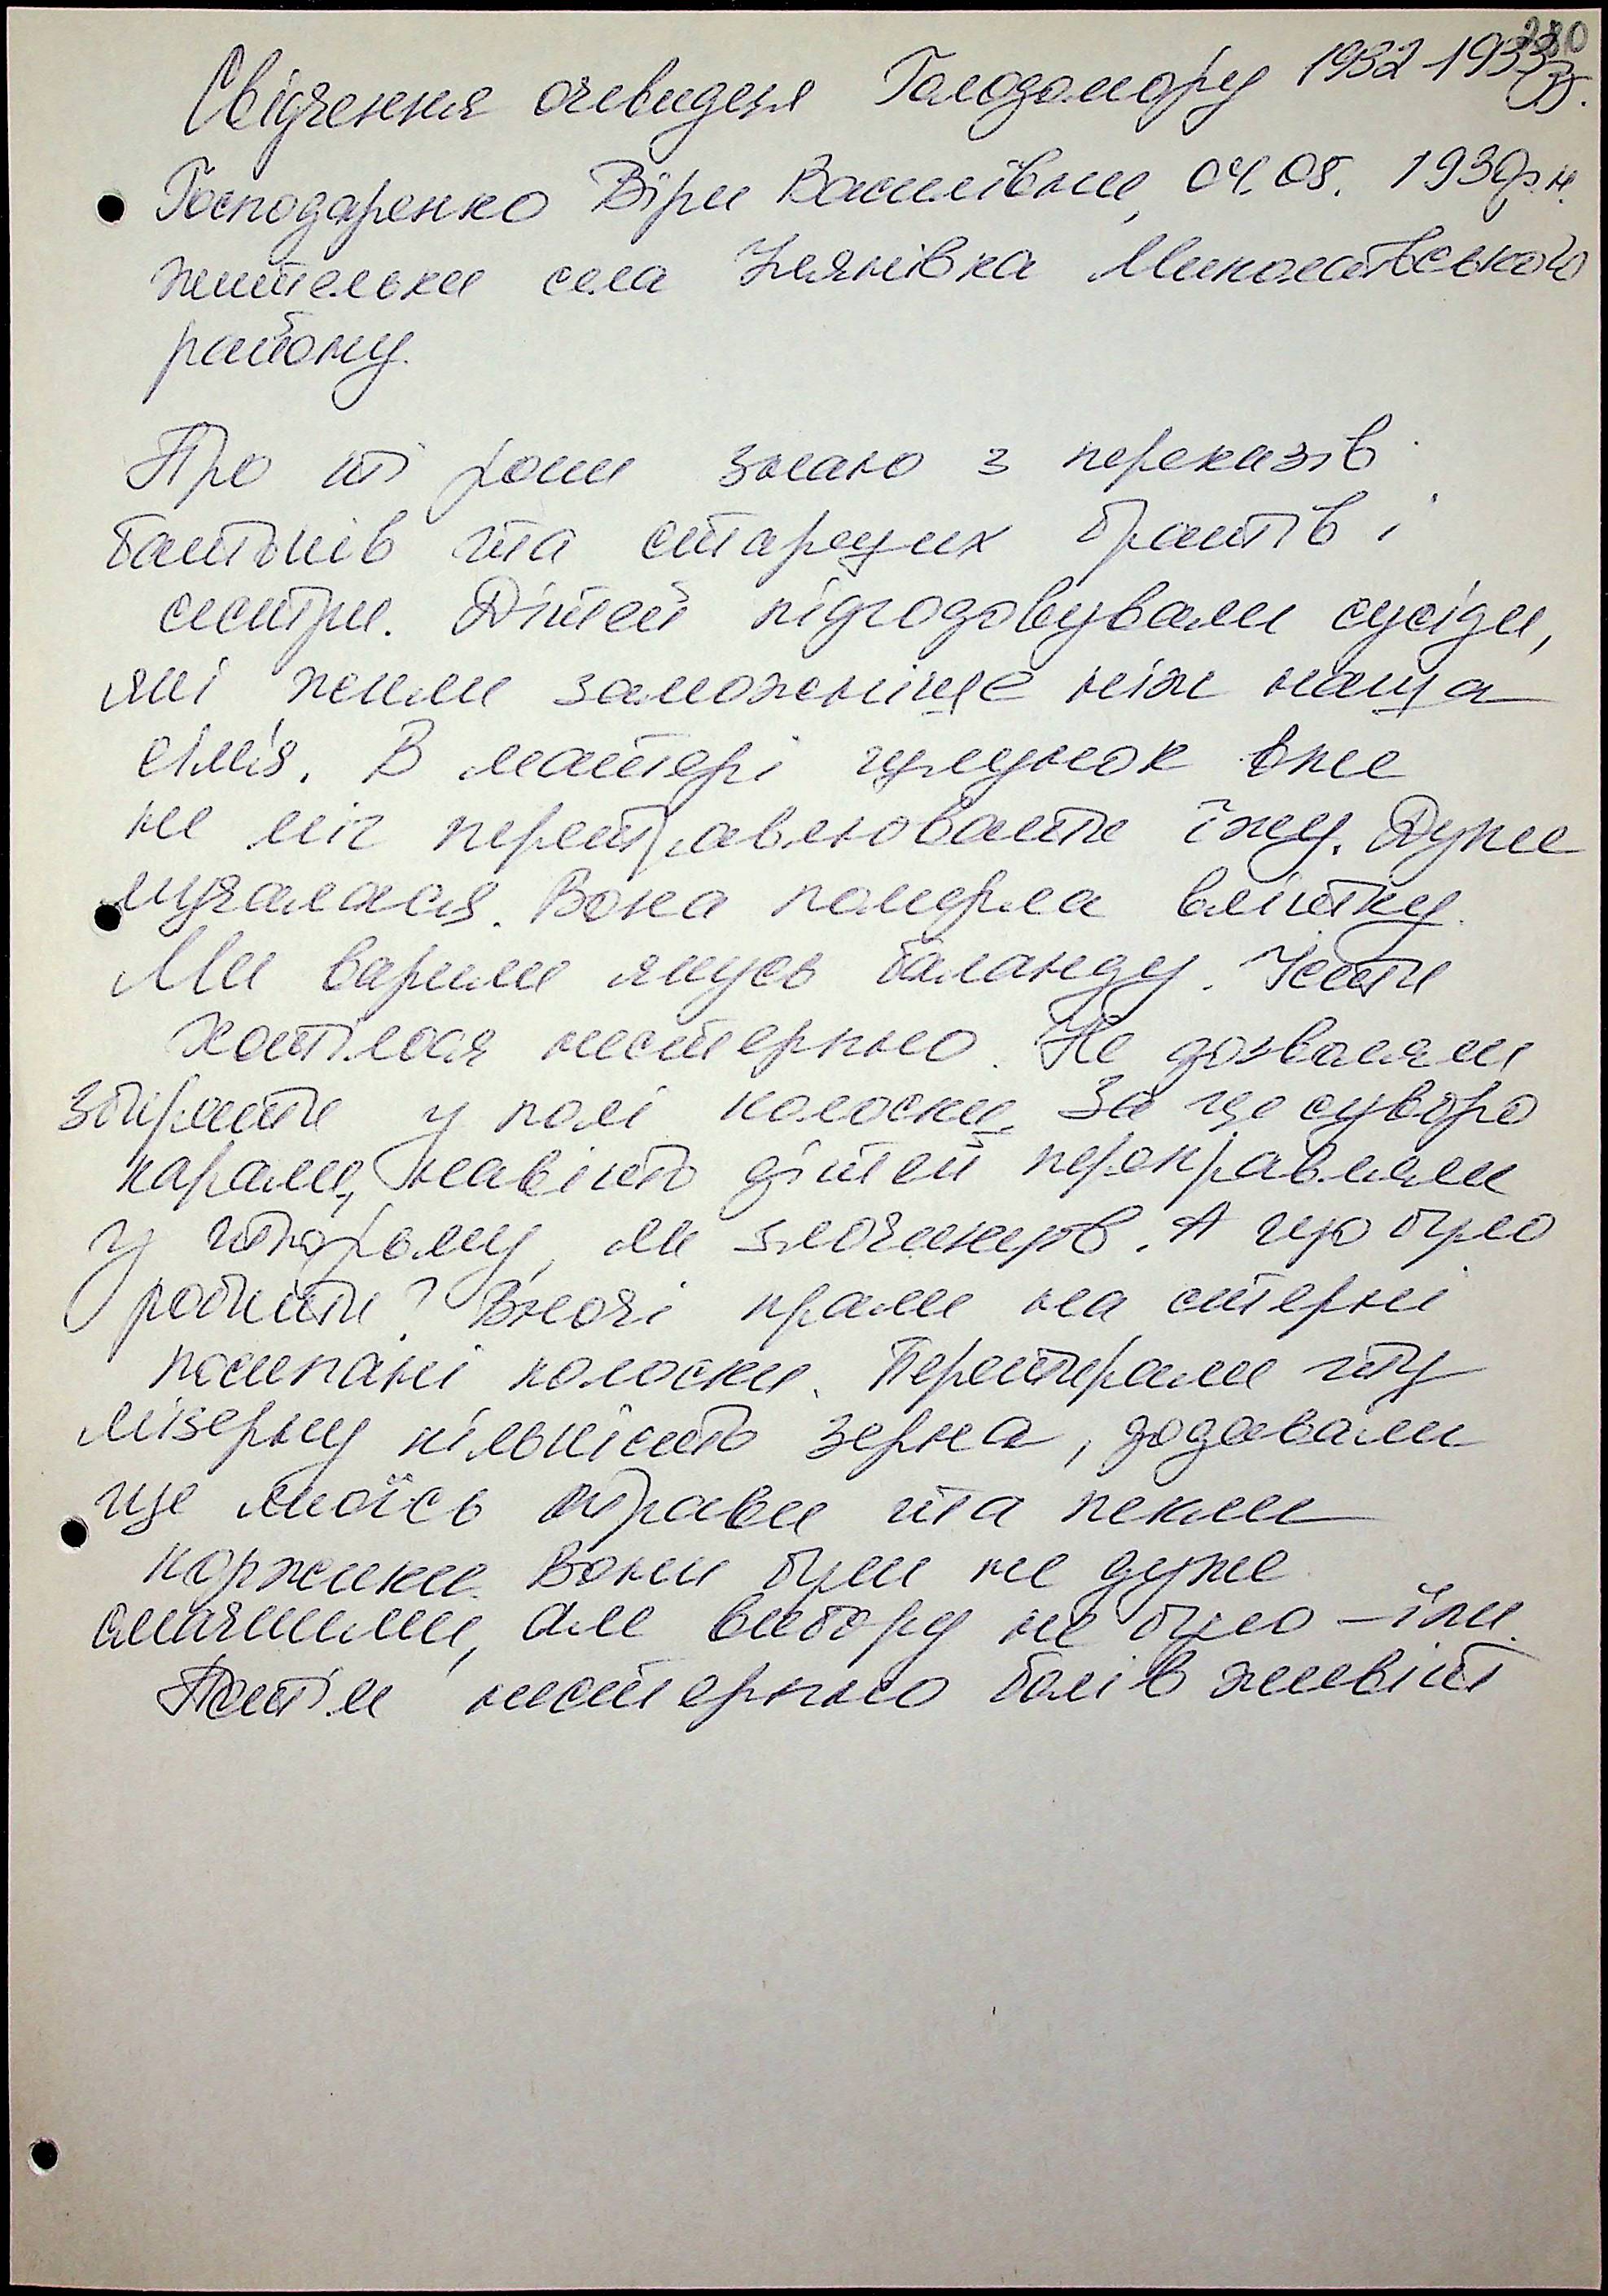 280
Свідчення очевидця Голодомору 1932-1933рр.
Господаренко Віри Василівни, 04.08. 1930р.н.
жительки села Улянівка Миколаївського
району.
Про ті роки знаю з переказів
батьків та старших братів і
сестри. Дітей підгодовували сусіди,
які жили заможніше ніж наша
сім'я. В матері шлунок вже
не міг перетравлювати їжу. Дуже
мучалася. Вона померла влітку.
Ми варили якусь баланду. Їсти
хотілося нестерпно. Не дозволяли
збирати у полі колоски. За це суворо
карали, навіть дітей переправляли
у тюрму, як злочинців. А що було
робити? Вночі крали на стерні
посипані колоски. Перетирали ту
мізерну кількість зерна, додавали
ще якоїсь трави та пекли
коржики. Вони були не дуже
смачними, але вибору не було – їли.
Потім нестерпно болів живіт